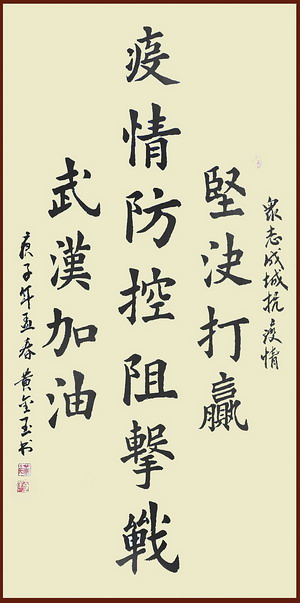 眾志成城抗疫情
堅決打贏
疫情防控阻擊戰
武漢加油
庚子年孟春 黄金玉书